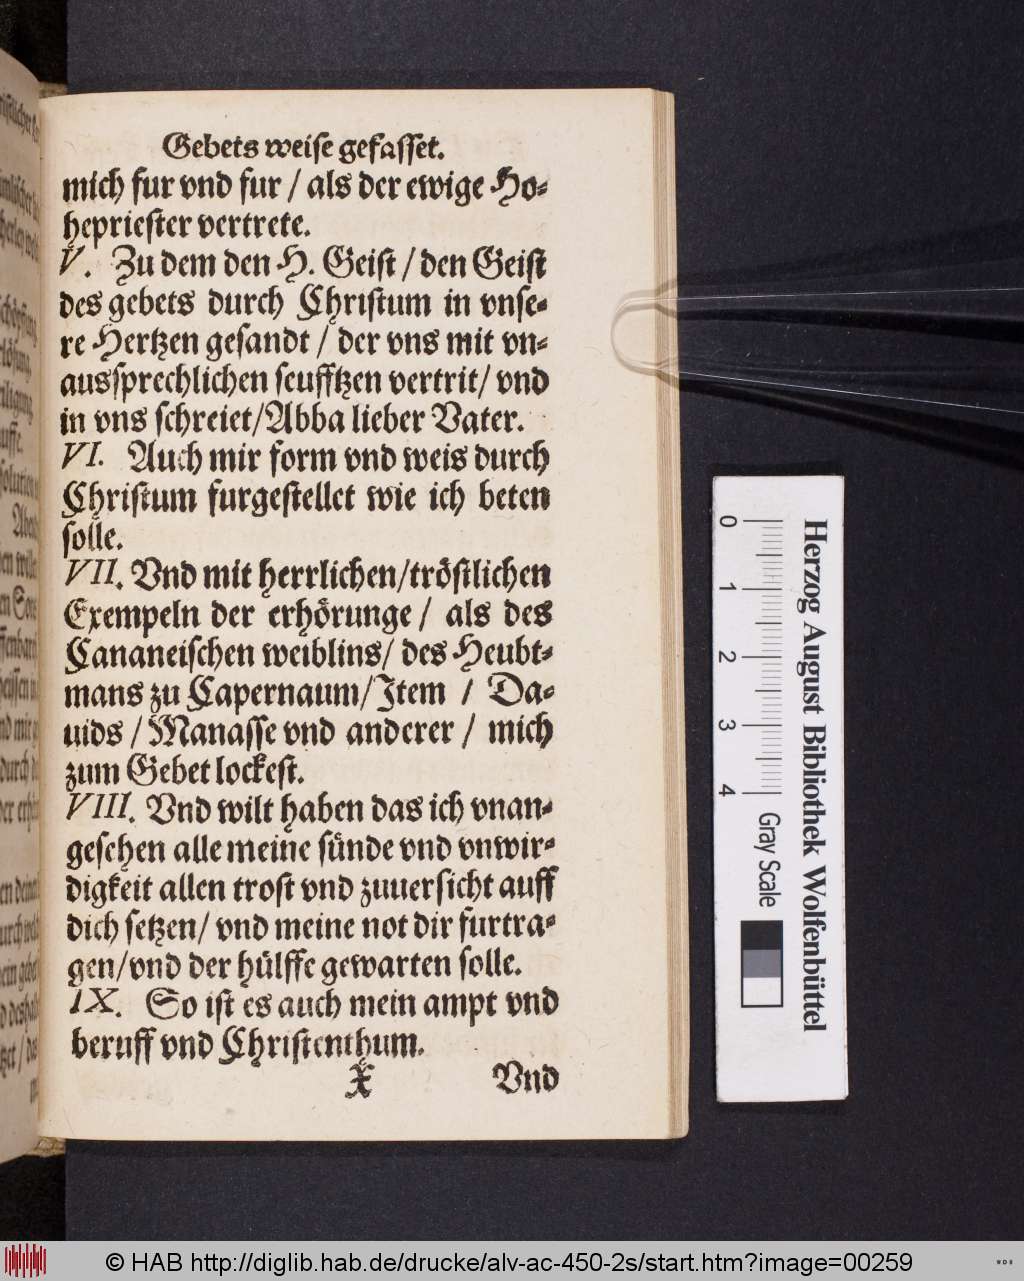 Gebets weise gefasset.
mich fur vnd fur / als der ewige Ho-
hepriester vertrete.
V. Zu dem den H. Geist / den Geist
des gebets durch Christum in vnse-
re Hertzen gesandt / der vns mit vn-
aussprechlichen seufftzen vertrit/ vnd
in vns schreiet/Abba lieber Vater.
VI. Auch mir form vnd weis durch
Christum furgestellet wie ich beten
solle.
VII. Vnd mit herrlichen/tröstlichen
Exempeln der erhörunge / als des
Cananeischen weiblins/ des Heubt-
mans zu Capernaum/Item / Da-
uids / Manasse vnd anderer / mich
zum Gebet lockest.
VIII. Vnd wilt haben das ich vnan-
gesehen alle meine sünde vnd vnwir-
digkeit allen trost vnd zuuersicht auff
dich setzen/ vnd meine not dir furtra-
gen/vnd der hülffe gewarten solle.
IX. So ist es auch mein ampt vnd
beruff vnd Christenthum.
X Vnd
0 1 2 3 4
Gray Scale
Herzog August Bibliothek Wolfenbüttel
© HAB http://diglib.hab.de/drucke/alv-ac-450-2s/start.htm?image=00259